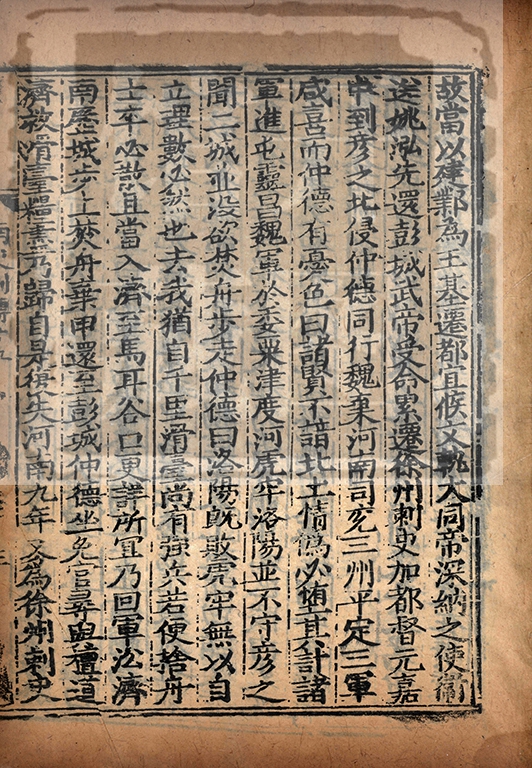 故當以建鄴為王基遷都宜候文軌大同帝深納之使衛
送姚泓先還彭城武帝受命累遷徐州刺史加都督元嘉
中到彥之北侵仲德同行魏棄河南司兗三州平定三軍
咸喜而仲德有憂色曰諸賢不諳北土情偽必墮其計諸
軍進屯靈昌魏軍於委粟津度河虎牢洛陽並不守彥之
聞二城並没欲焚舟步走仲德曰洛陽既敗虎牢無以自
立理數必然也去我猶自千里滑臺尚有強兵若便捨舟
士卒必散且當入濟至馬耳谷口更詳所宜乃回軍沿濟
南歷城步上焚舟棄甲還至彭城仲德坐免官尋與檀道
濟救滑臺糧盡乃歸自是復失河南九年又為徐州刺史